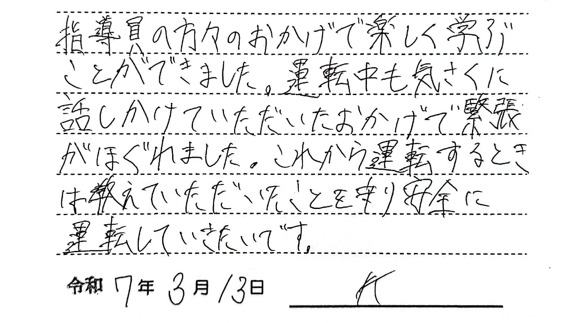 指導員の方々のおかげで楽しく学ぶ
ことができました。運転中も気さくに
話しかけていただいたおかげで緊張
がほぐれました。これから運転するとき
は教えていただいたことを守り安全に
運転していきたいです。
令和 7年 3月 13日